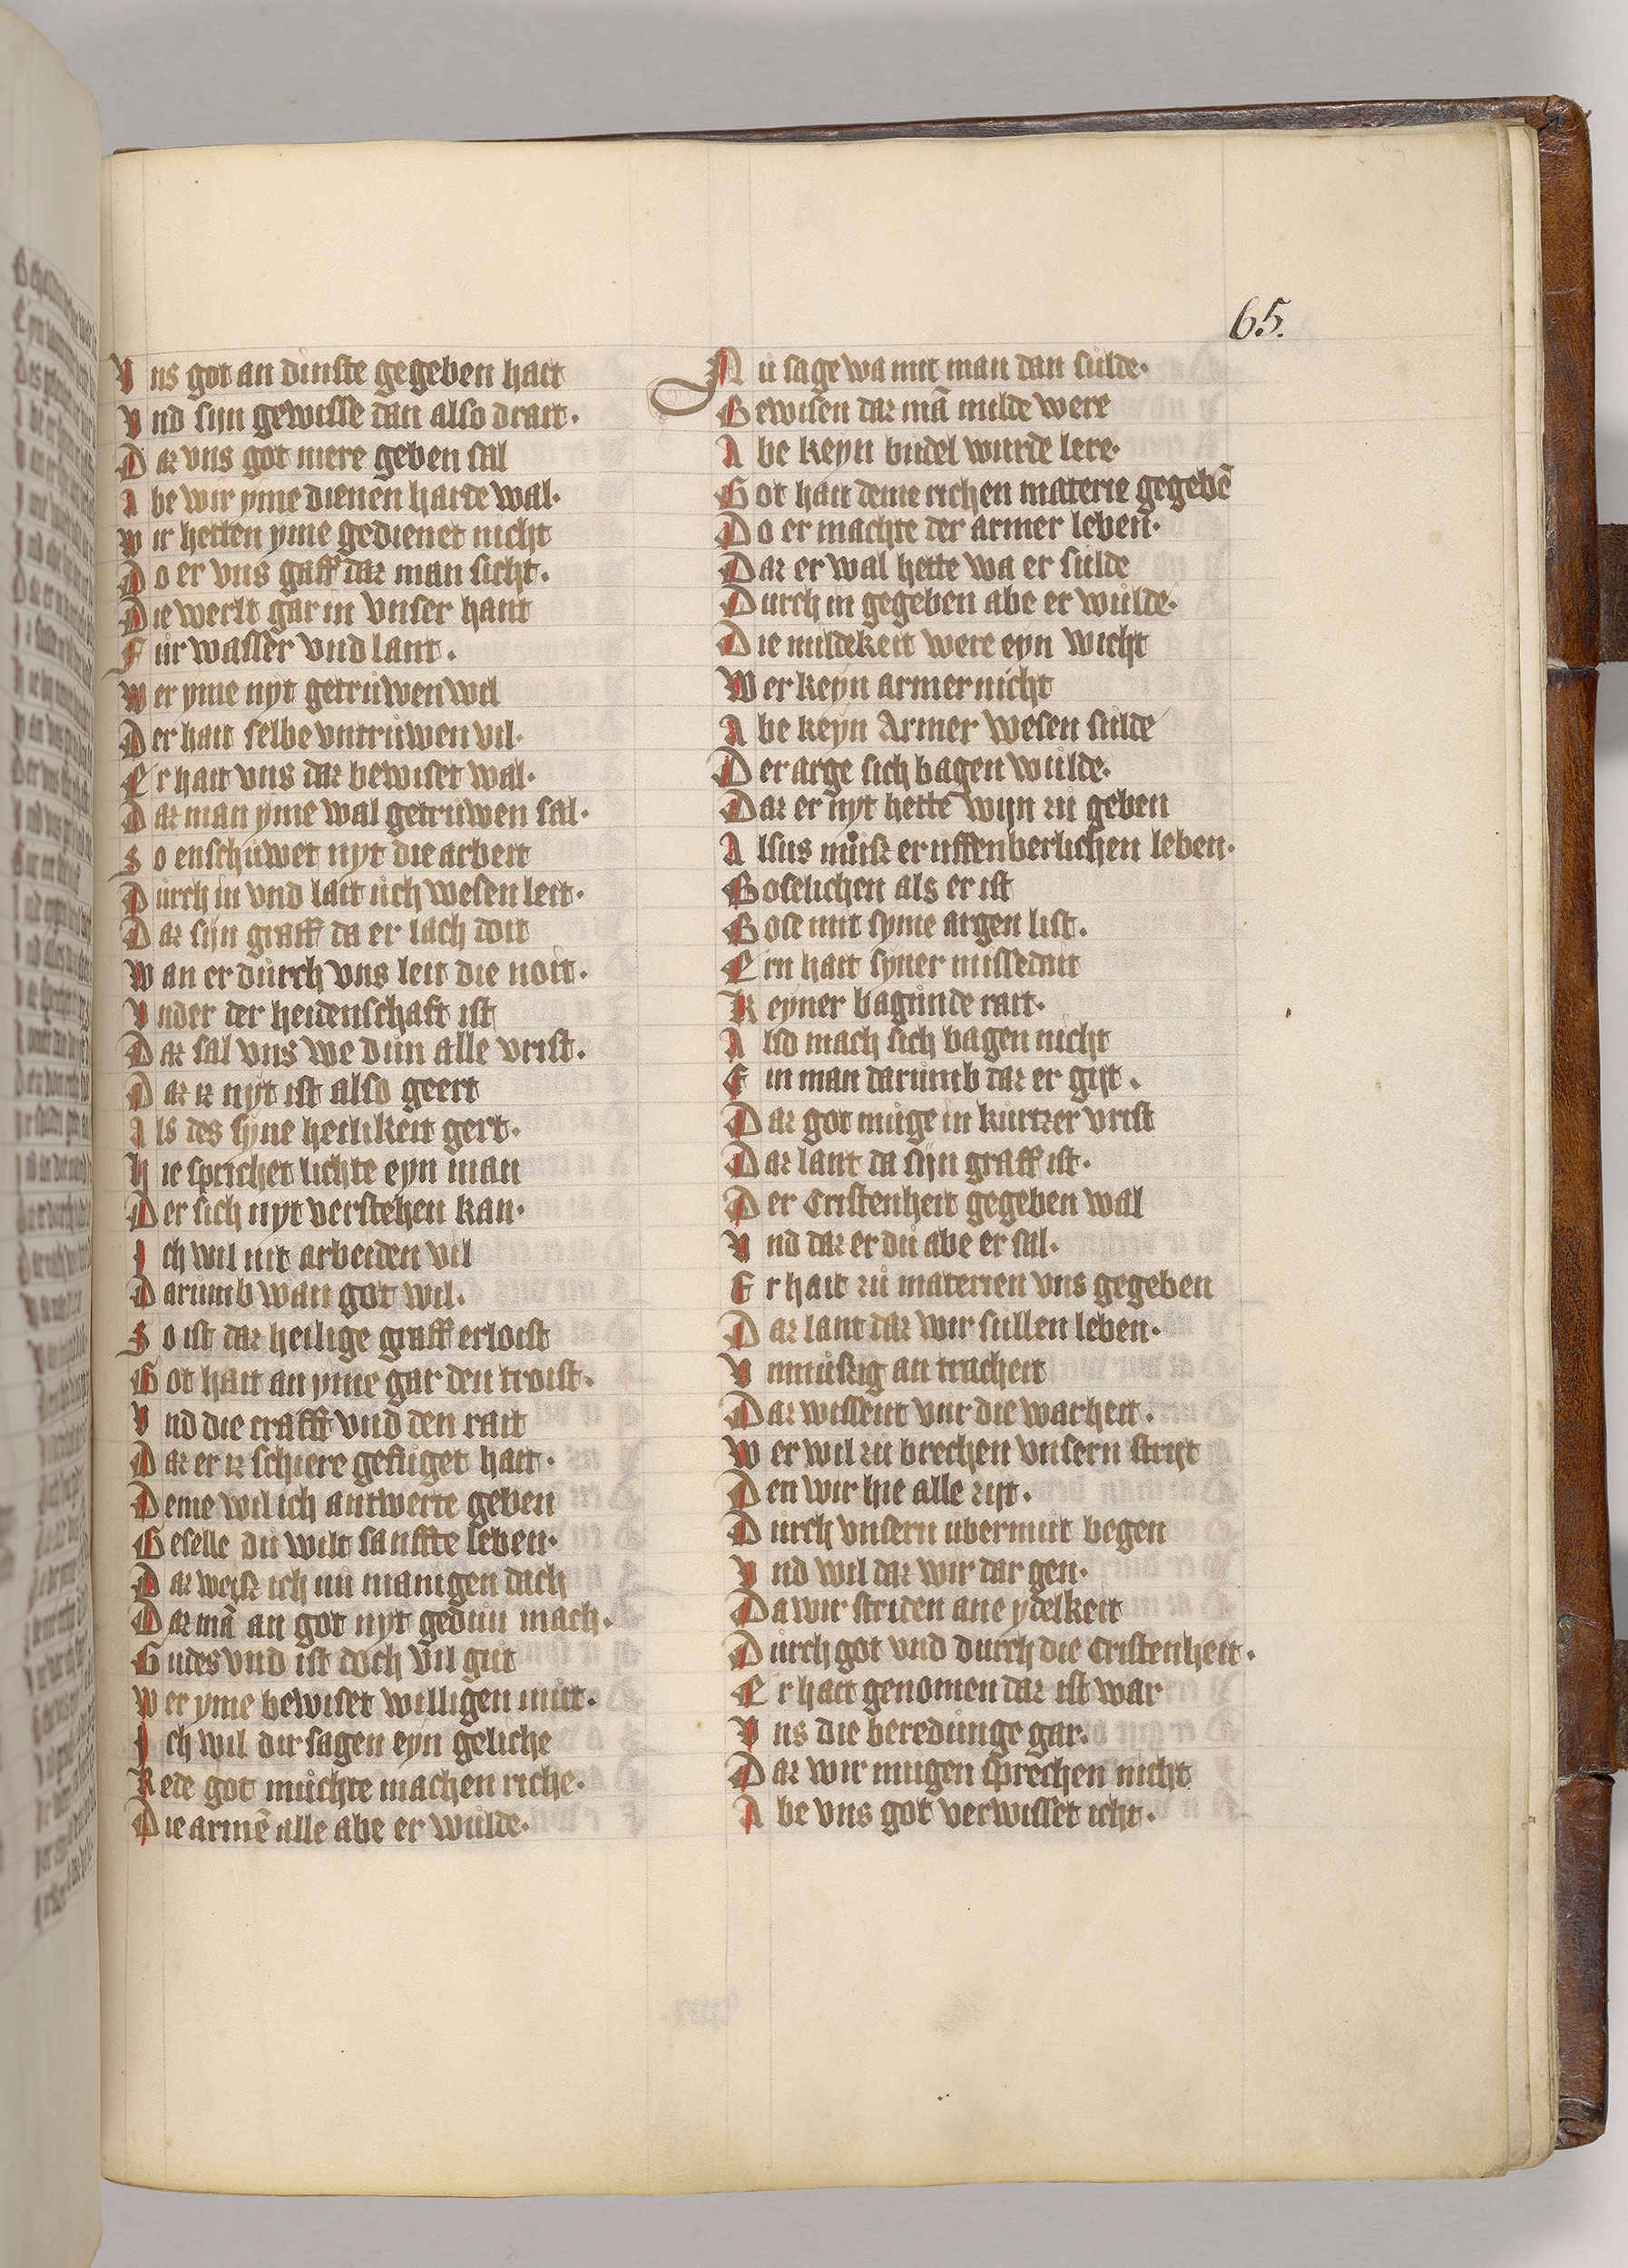 65.
Vns got an dinste gegeben hait
Vnd sijn gewisse dan also drait.
Daz vns got mere geben sal
Abe wir yme dienen harde wal.
Wir hetten yme gedienet nicht
Do er vns gaff daz man sicht.
Die werlt gar in vnser hant
Fůr wasser vnd lant.
Wer yme nyt getrůwen wil
Der hait selbe vntrůwen vil.
Er hait vns daz bewiset wal.
Daz man yme wal getrůwen sal.
So enschůwet nyt die arbeit
Důrch in vnd lait ůch wesen leit.
Daz sijn graff da er lach doit
Wan er důrch vns leit die noit.
Vnder der heidenschaft ist
Daz sal vns we důn alle vrist.
Daz iz nyt ist also geert
Als des syne heilikeit gert.
Hie sprichet lichte eyn man
Der sich nyt verstehen kan.
Ich wil nit arbeiden vil
Darůmb wan got wil.
So ist daz heilige graff erloist
Got hait an yme gar den troist.
Vnd die crafft vnd den rait
Daz er iz schiere gefůget hait.
Deme wil ich antwerte geben
Geselle dů wilt sanffte leben.
Daz weiß ich nů manigen dach
Daz mā an got nyt gedůn mach.
Gudes vnd ist doch vil gůt
Wer yme bewiset willigen můt.
Ich wil dir sagen eyn geliche
Rede got můchte machen riche.
Die armē alle abe er wůlde.
Nů sage wa mit man dan sůlde.
Bewisen daz mā milde were
Abe keyn budel wurde lere.
Got hait deme richen materie gegebē
Do er machte der armer leben.
Daz er wal hette wa er sůlde
Durch in gegeben abe er wůlde.
Die mildekeit were eyn wicht
Wer keyn armer nicht
Abe keyn Armer wesen sůlde
Der arge sich bagen wůlde.
Daz er nyt hette wijn zů geben
Alsus můß er uffenberlichen leben.
Boselichen als er ist
Bose mit syme argen list.
Ein hait syner missedait
Keyner bagůnde rait.
Also mach sich bagen nicht
Ein man darůmb daz er giht.
Daz got můge in kůrtzer vrist
Daz lant da sijn graff ist.
Der Cristenheit gegeben wal
Vnd daz er dů abe er sal.
Er hait zů materien vns gegeben
Daz lant daz wir sullen leben.
Vnmůßig an tracheit
Daz wissent vur die warheit.
Wer wil zů brechen vnsern strijt
Den wir hie alle zijt.
Durch vnsern ubermůt begen
Vnd wil daz wir dar gen.
Da wir striden ane ydelkeit
Důrch got vnd durch die Cristenheit.
Er hait genomen daz ist war
Vns die beredůnge gar.
Daz wir můgen sprechen nicht
Abe vns got verwisset icht.